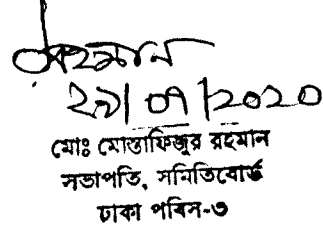 ২৯/০৭/২০২০
মোঃ মোস্তাফিজুর রহমান
সভাপতি, সমিতিবোর্ড
ঢাকা পবিস-৩